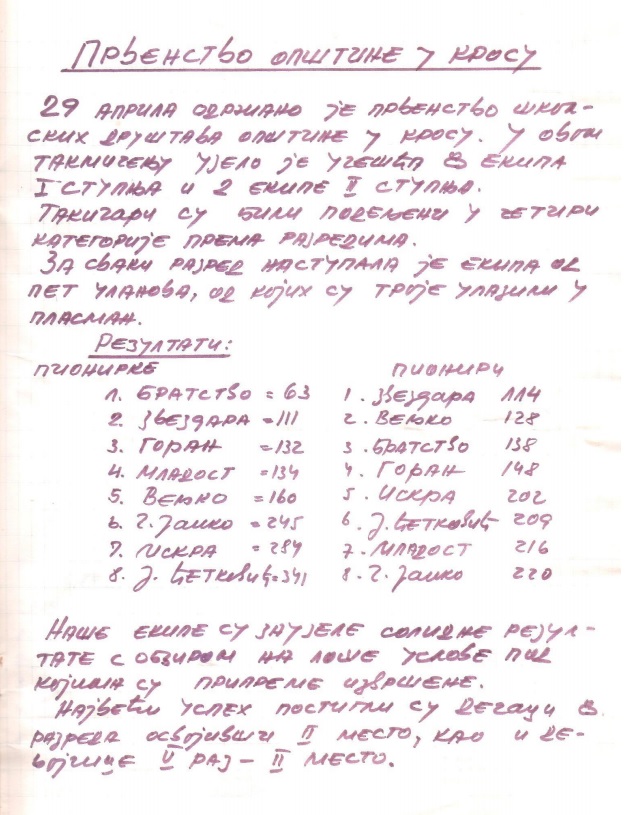 Првенство општине у кросу
29 априла одржано је првенство школ-
ских друштава општине у кросу. У овом
такмичењу узело је учешћа 8 екипа
I ступња и 2 екипе II ступња.
Такичари су били подељени у четири
категорије према разредима.
За сваки разред наступала је екипа од
пет чланова, од којих су троје улазили у
пласман.
Резултати:
пионирке пионири
1. Братство = 63 1. Звездара 114
2. Звездара = 111 2. Вељко 128
3. Горан = 132 3. Братство 138
4. Младост = 134 4. Горан 148
5. Вељко = 160 5. Искра 202
6. Ч. Јанко = 245 6. Ј. Ћетковић 209
7. Искра = 284 7. Младост 216
8. Ј. Ћетковић = 341 8. Ч. Јанко 220
Наше екипе су заузеле солидне резул-
тате с обзиром на лоше услове под
којима су припреме извршене.
Највећи успех постигли су дечаци 8.
разреда освојивши II место, као и де-
војчице V раз – II место.